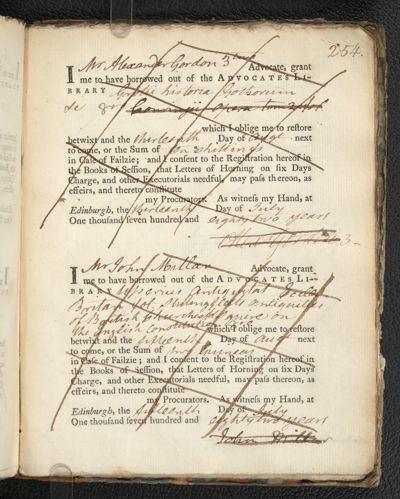 254.
I Mr Alexander Gordon 3 Advocate, grant
me to have borrowed out of the ADVOCATES LI-
BRARY Grotii historia Gothorum
&c
which I oblige me to restore
betwixt and the thirteenth Day of next
to come, or the Sum of ten shillings
in Case of Failzie; and I consent to the Registration hereof in
the Books of Session, that Letters of Horning on six Days
Charge, and other Executorials needful, may pass thereon, as
effeirs, and thereto constitute
my Procurators. As witness my Hand, at
Edinburgh, the thirteenth Day of July
One thousand seven hundred and eighty two years
I Mr John Millar Advocate, grant
me to have borrowed out of the ADVOCATES LI-
BRARY Usserius Antiquitat Eccles
Britan Stillingfleets antiquities
of British Churches on
the English Constitution
which I oblige me to restore
betwixt and the sixteenth Day of Augt next
to come, or the Sum of two guineas
in Case of Failzie; and I consent to the Registration hereof in
the Books of Session, that Letters of Horning on six Days
Charge, and other Executorials needful, may pass thereon, as
effeirs, and thereto constitute
my Procurators. As witness my Hand, at
Edinburgh, the sixteenth Day of July
One thousand seven hundred and eighty two years
John Millar